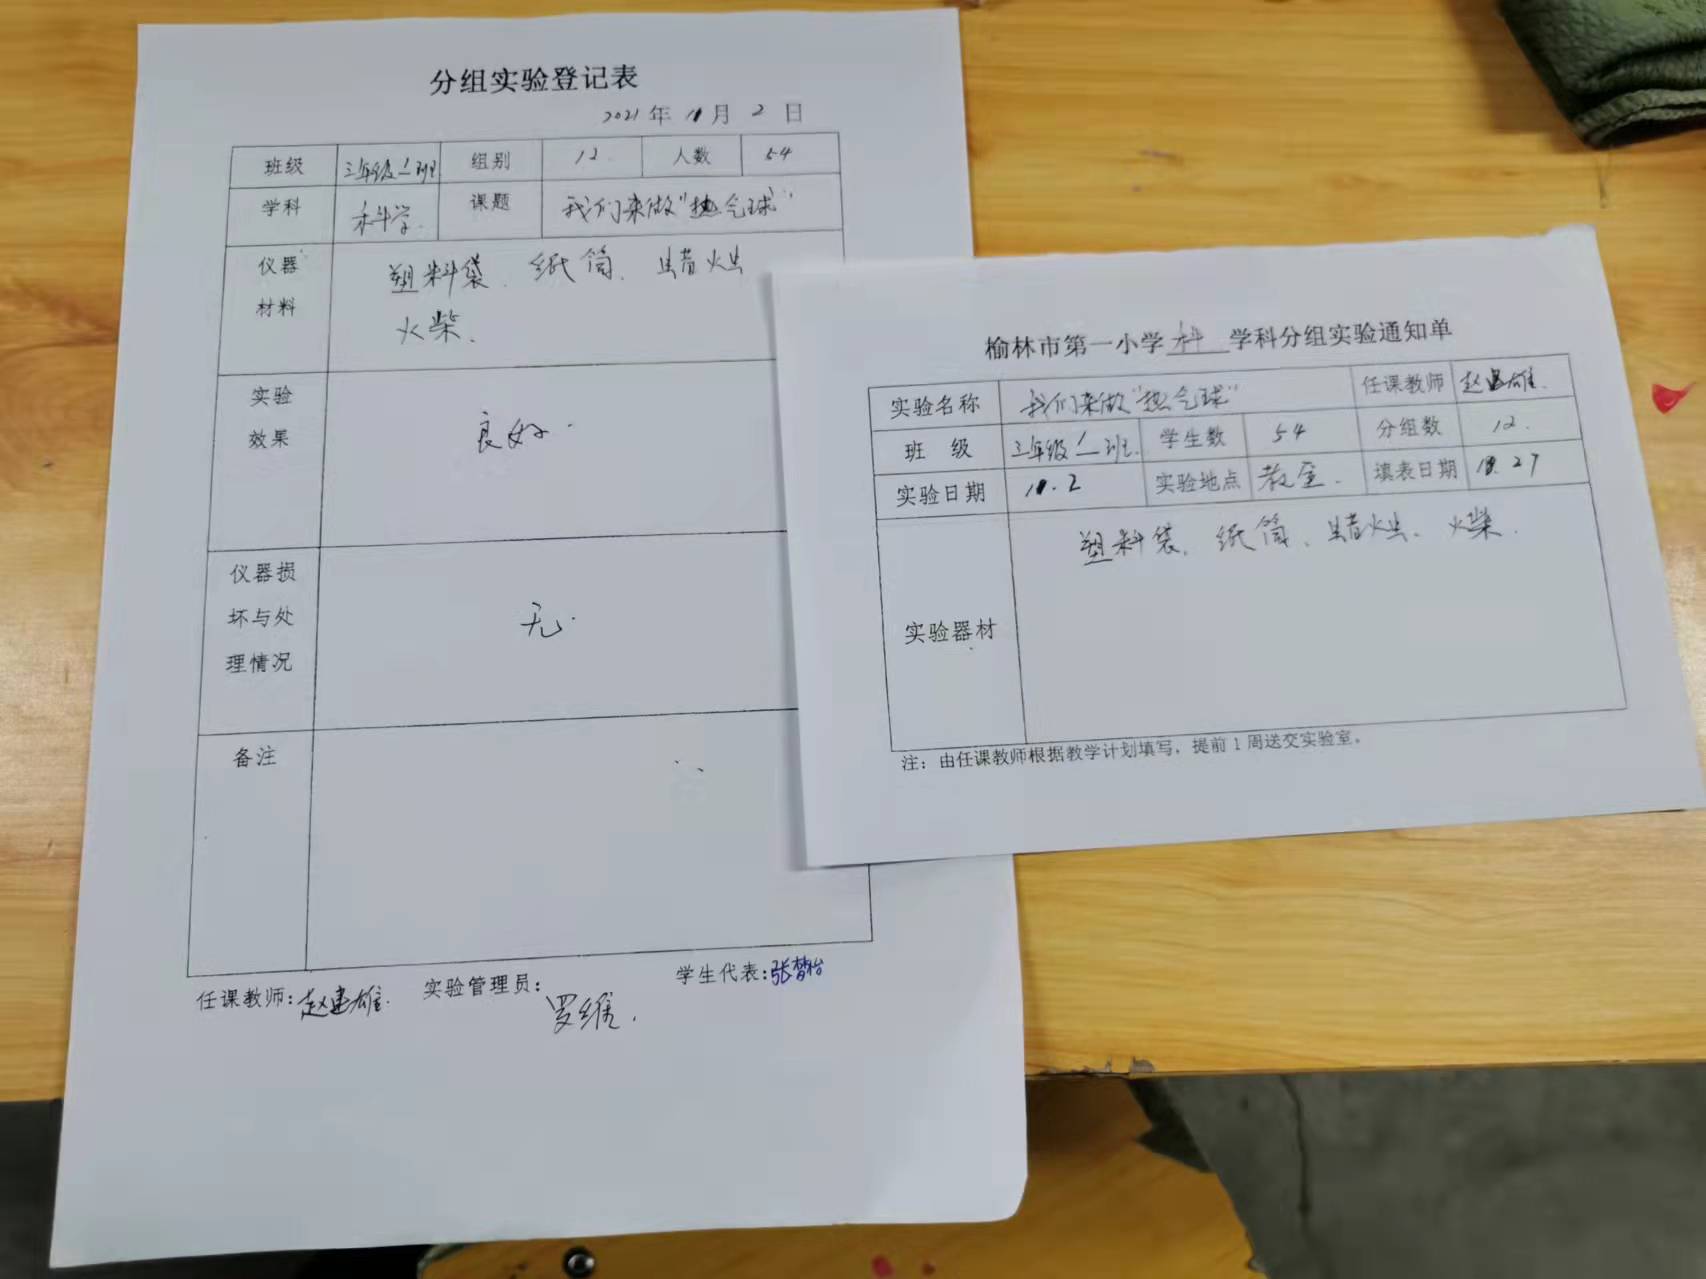 分组实验登记表
2021年 11月 2日
班级 三年级1班 组别 12 人数 54
学科 科学. 课题 我们来做"热气球"
仪器材料 塑料袋、纸筒、蜡烛
火柴.
实验效果 良好.
仪器损坏与处理情况 无.
备注
任课教师:赵建雄. 实验管理员: 罗维. 学生代表:张梦怡
榆林市第一小学 科 学科分组实验通知单
实验名称 我们来做"热气球" 任课教师 赵建雄.
班 级 三年级1班. 学生数 54 分组数 12.
实验日期 11.2 实验地点 教室. 填表日期 10.27
实验器材 塑料袋、纸筒、蜡烛、火柴.
注：由任课教师根据教学计划填写，提前1周送交实验室。